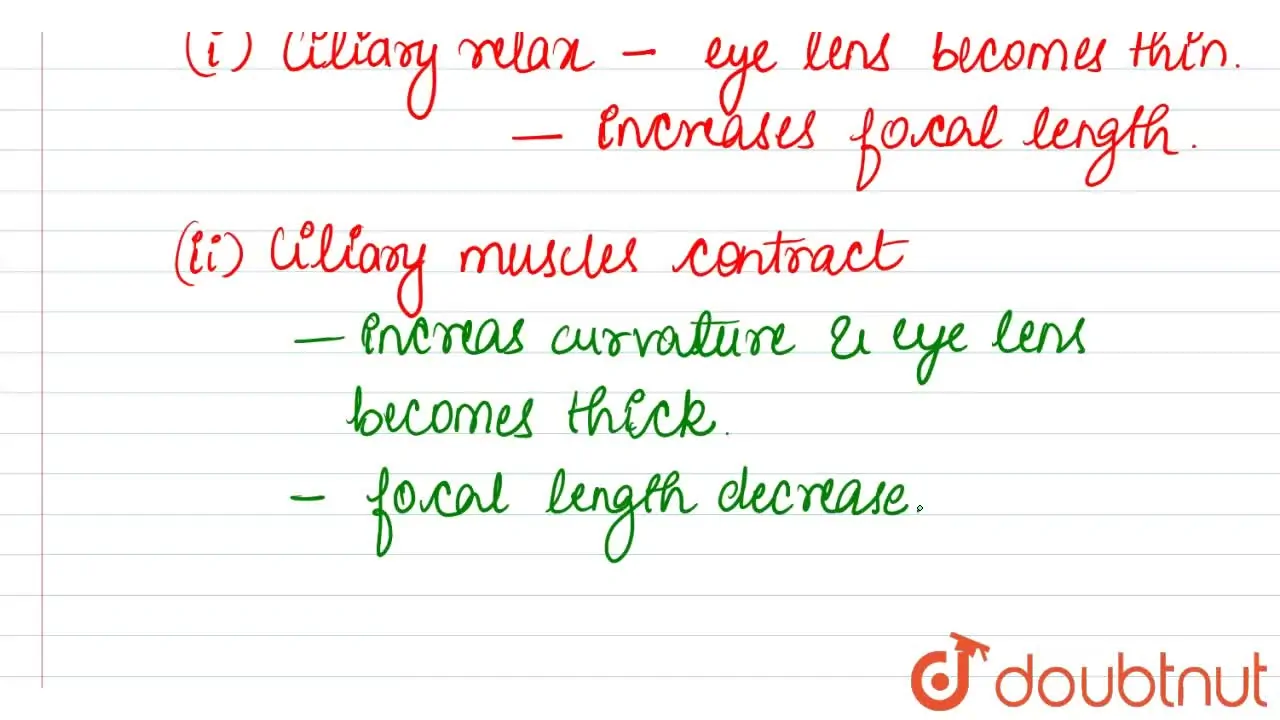 (i) Ciliary relax – eye lens becomes thin.
– increases focal length.
(ii) Ciliary muscles contract
– increas curvature & eye lens
becomes thick.
– focal length decrease.
doubtnut